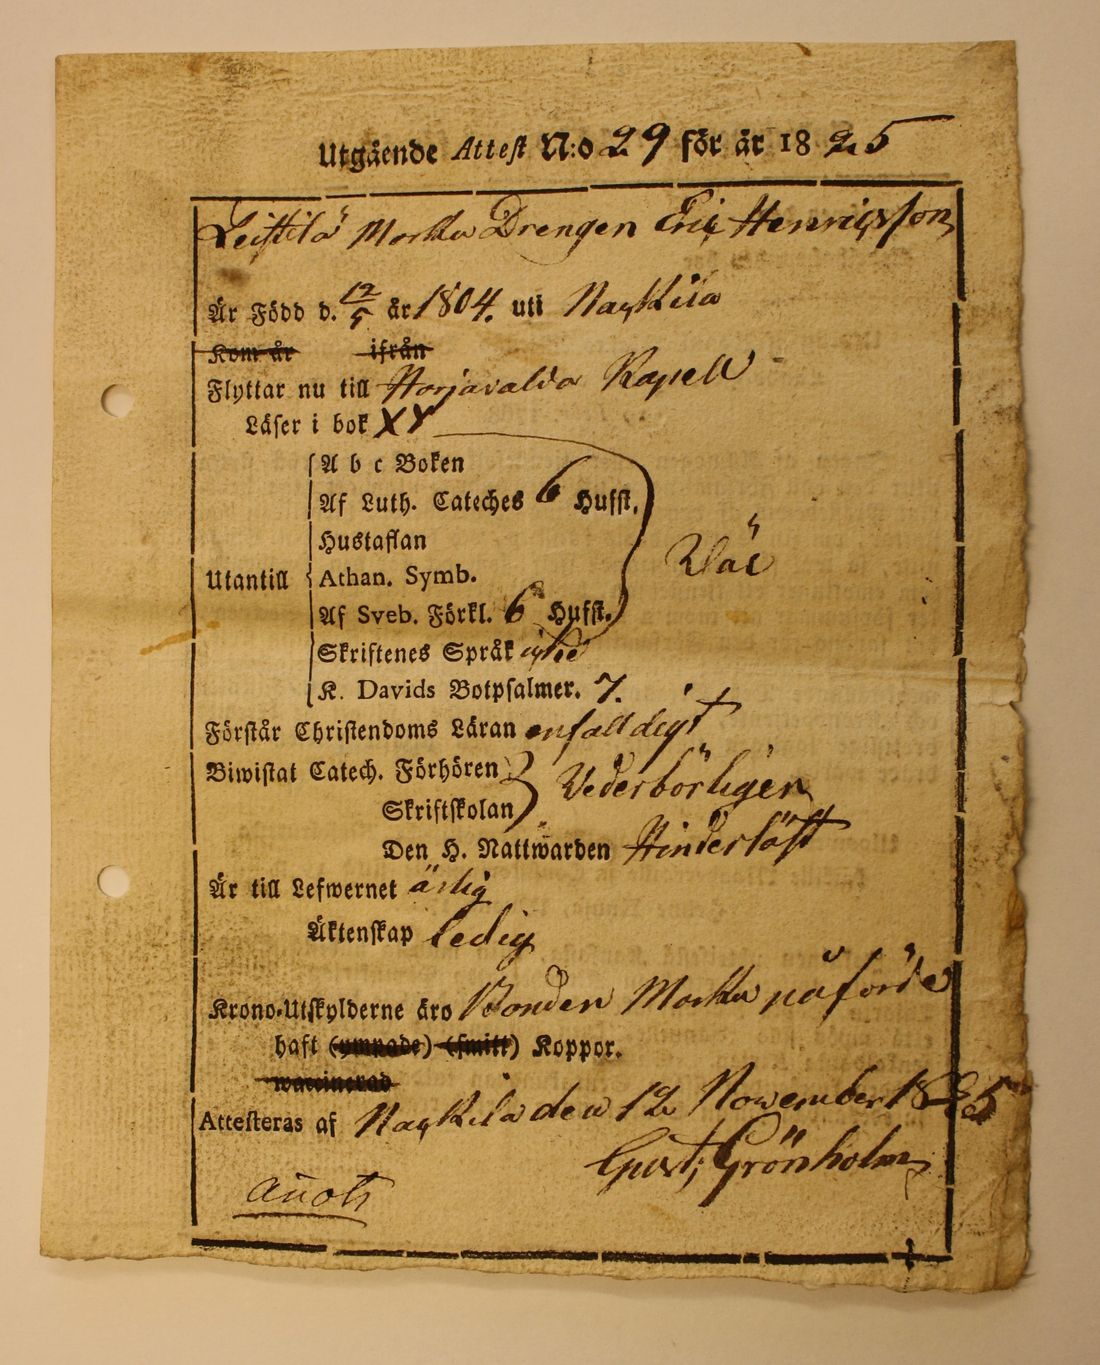 Utgående Attest N:o 29 för år 1825
Leistilä Marku Drengen Eric Henricsson
Är Född d. 12/5 år 1804. uti Nackila
Kom år ifrån
Flyttar nu till Harjavalda Kapell
Läser i bok XY
A b c Boken
Af Luth. Cateches 6 Husst.
Hustaflan
Utantill Athan. Symb.
Af Sveb. Förkl. 6 Husst.
Skriftenes Språk icke
K. Davids Botpsalmer. 7.
Förstår Christendoms Läran enfalldigt
Biwistat Catech. Förhören
Skriftskolan Vederbörligen
Den H. Nattwarden Hinderlöst
Är till Lefwernet ärlig
Äktenskap ledig
Krono-Utskylderne äro Bonden Marku påförde
haft (ympade) (smitt) Koppor.
waccinerad
Attesteras af Nackila den 12 November 1825
Gust; Grönholm